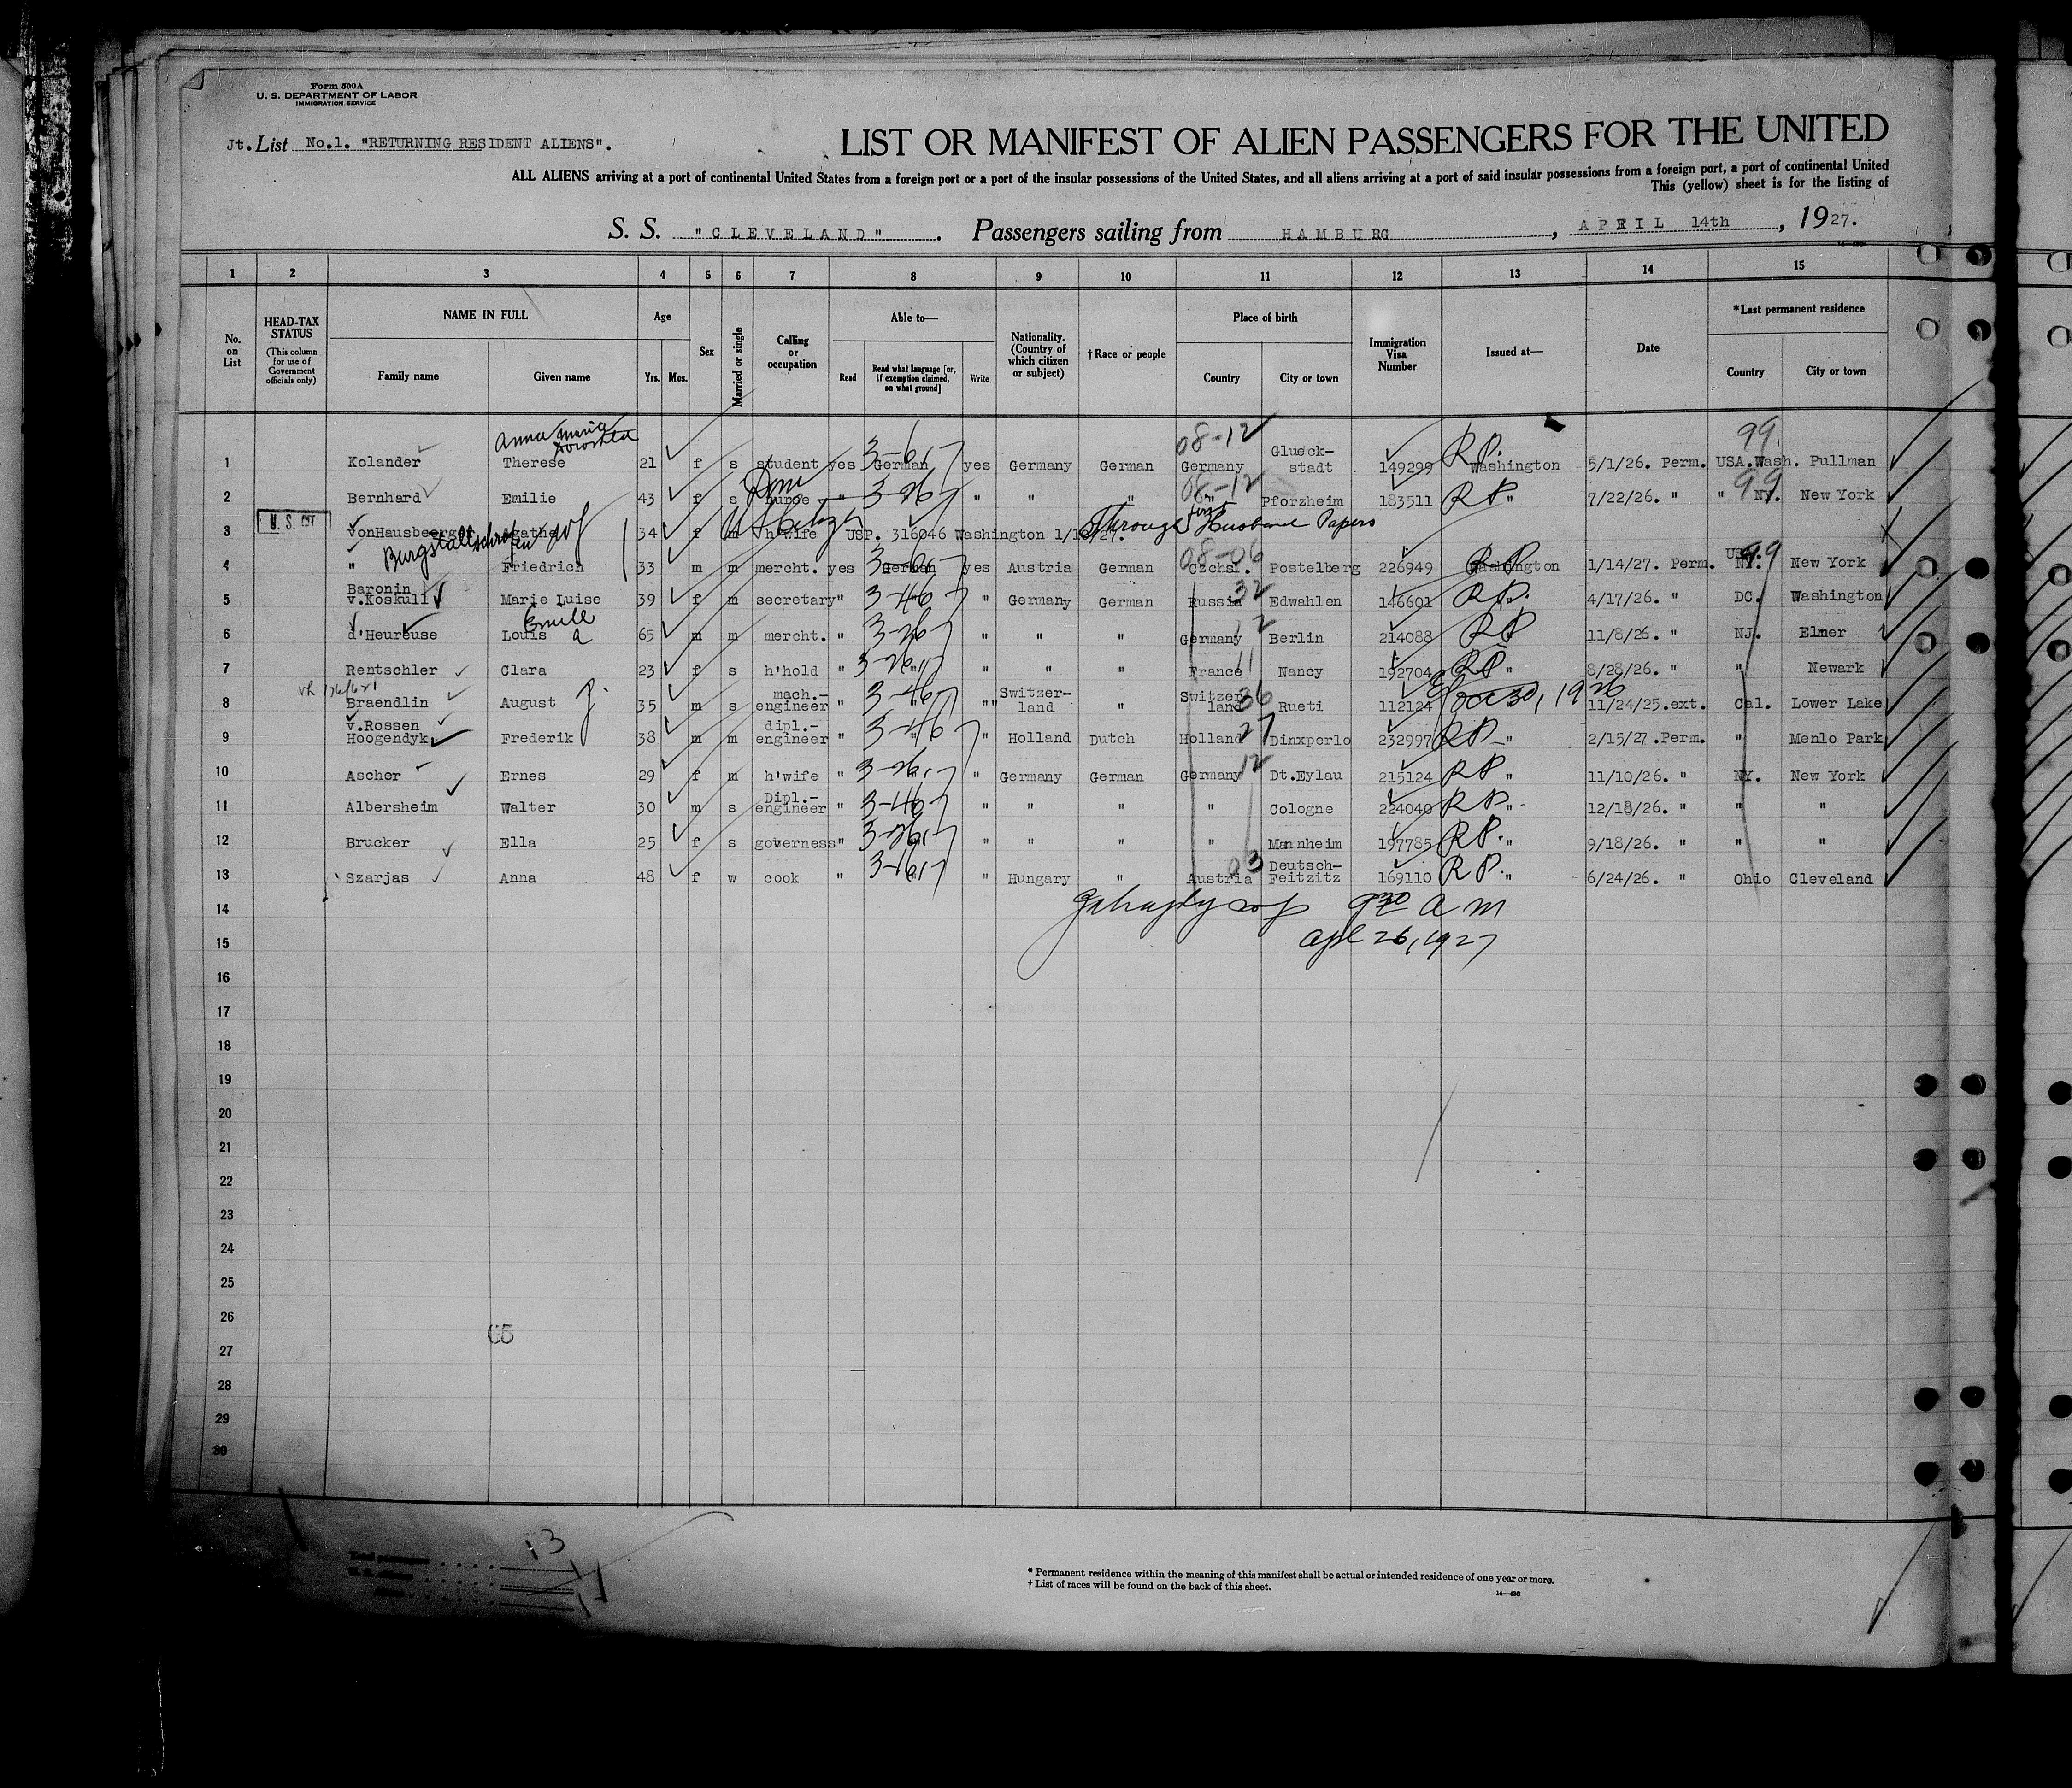 Form 500A
U. S. DEPARTMENT OF LABOR
IMMIGRATION SERVICE
Jt. List No.1. "RETURNING RESIDENT ALIENS".
LIST OR MANIFEST OF ALIEN PASSENGERS FOR THE UNITED
ALL ALIENS arriving at a port of continental United States from a foreign port or a port of the insular possessions of the United States, and all aliens arriving at a port of said insular possessions from a foreign port, a port of continental United
This (yellow) sheet is for the listing of
S. S. "CLEVELAND". Passengers sailing from HAMBURG, APRIL 14th, 1927.
1 2 3 4 5 6 7 8 9 10 11 12 13 14 15
No. on List
HEAD-TAX STATUS (This column for use of Government officials only)
NAME IN FULL Family name Given name
Age Yrs. Mos.
Sex
Married or single
Calling or occupation
Able to— Read Read what language [or, if exemption claimed, on what ground] Write
Nationality. (Country of which citizen or subject)
† Race or people
Place of birth Country City or town
Immigration Visa Number
Issued at—
Date
*Last permanent residence Country City or town
Anna Maria 08-12 99
1 Kolander Therese 21 f s student yes German yes Germany German Germany Glueck-stadt 149299 RP. Washington 5/1/26. Perm. USA.Wash. Pullman
2 Bernhard Emilie 43 f s nurse " 3-26 " " " 08-12 " Pforzheim 183511 RP " 7/22/26. " " NY. New York
U. S. CIT
3 vonHausbeerger Agathe 34 f m h'wife US Citizen USP. 316046 Washington Through Husband first Papers
Burgstaller
4 " Friedrich 33 m m mercht. yes German yes Austria German 08-06 Czchsl. Postelberg 226949 RP Washington 1/14/27. Perm. USA. NY. 99 New York
5 Baronin v.Koskull Marie Luise 39 f m secretary " 3-46 " Germany German Russia 32 Edwahlen 146601 RP. 4/17/26. " DC. Washington
Emile
6 d'Heureuse Louis a 65 m m mercht. " 3-26 " " " Germany 12 Berlin 214088 RP 11/8/26. " NJ. Elmer
7 Rentschler Clara 23 f s h'hold " 3-26 " " " France 11 Nancy 192704 RP " 8/28/26. " " Newark
8 Braendlin August J. 35 m s mach.-engineer " 3-46 "" Switzer-land " Switzer-land 36 Rueti 112124 30, 1926 11/24/25.ext. Cal. Lower Lake
9 v.Rossen Hoogendyk Frederik 38 m m dipl.-engineer " 3-46 " Holland Dutch Holland 27 Dinxperlo 232997 RP " 2/15/27.Perm. " Menlo Park
10 Ascher Ernes 29 f m h'wife " 3-26 " Germany German Germany 12 Dt.Eylau 215124 RP " 11/10/26. " NY. New York
11 Albersheim Walter 30 m s Dipl.-engineer " 3-46 " " " " Cologne 224040 RP " 12/18/26. " " "
12 Brucker Ella 25 f s governess " 3-26 " " " " Mannheim 197785 RP. " 9/18/26. " " "
13 Szarjas Anna 48 f w cook " " Hungary " Austria 03 Deutsch-Feitzitz 169110 RP. " 6/24/26. " Ohio Cleveland
14 9 30 A M
15 Apl 26, 1927
16
17
18
19
20
21
22
23
24
25
26
65
27
28
29
30
Total passengers 13
* Permanent residence within the meaning of this manifest shall be actual or intended residence of one year or more.
† List of races will be found on the back of this sheet.